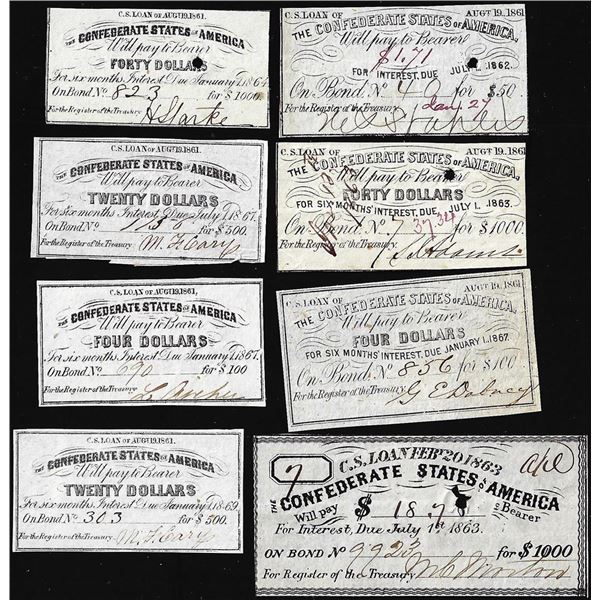 C.S. LOAN OF AUGT.19.1861.
THE CONFEDERATE STATES OF AMERICA
Will pay to Bearer
FORTY DOLLARS
For six months Interest Due January 1.1864.
On Bond No. 823 for $1000
For the Register of the Treasury. H Starke
C.S. LOAN OF AUGT 19. 1861
THE CONFEDERATE STATES OF AMERICA,
Will pay to Bearer
$1.71
FOR INTEREST, DUE JULY 1, 1862.
On Bond No. 40 for $50.
Jan 27
For the Register of the Treasury
C.S. LOAN OF AUGT.19.1861.
THE CONFEDERATE STATES OF AMERICA
Will pay to Bearer
TWENTY DOLLARS
For six months Interest Due July 1.1867.
On Bond No. for $500.
For the Register of the Treasury. M. F. Cary
C.S. LOAN OF AUGT 19. 1861
THE CONFEDERATE STATES OF AMERICA,
Will pay to Bearer
FORTY DOLLARS
FOR SIX MONTHS' INTEREST, DUE JULY 1. 1863.
37.34
On Bond No. 7 for $1000.
For the Register of the Treasury.
C.S. LOAN OF AUGT.19.1861.
THE CONFEDERATE STATES OF AMERICA
Will pay to Bearer
FOUR DOLLARS
For six months Interest Due January 1.1867.
On Bond No. 690 for $100
For the Register of the Treasury. L. Archer
C.S. LOAN OF AUGT 19. 1861
THE CONFEDERATE STATES OF AMERICA,
Will pay to Bearer
FOUR DOLLARS
FOR SIX MONTHS' INTEREST, DUE JANUARY 1. 1867.
On Bond No. 856 for $100
For the Register of the Treasury. G E Dabney
C.S. LOAN OF AUGT.19.1861.
THE CONFEDERATE STATES OF AMERICA
Will pay to Bearer
TWENTY DOLLARS
For six months Interest Due January 1.1869.
On Bond No. 303 for $500.
For the Register of the Treasury. M. F. Cary
7
C.S. LOAN FEBY 20 1863
THE CONFEDERATE STATES OF AMERICA
Will pay $ 18.78 to Bearer
For Interest, Due July 1st 1863.
ON BOND No 9925 for $1000
For Register of the Treasury